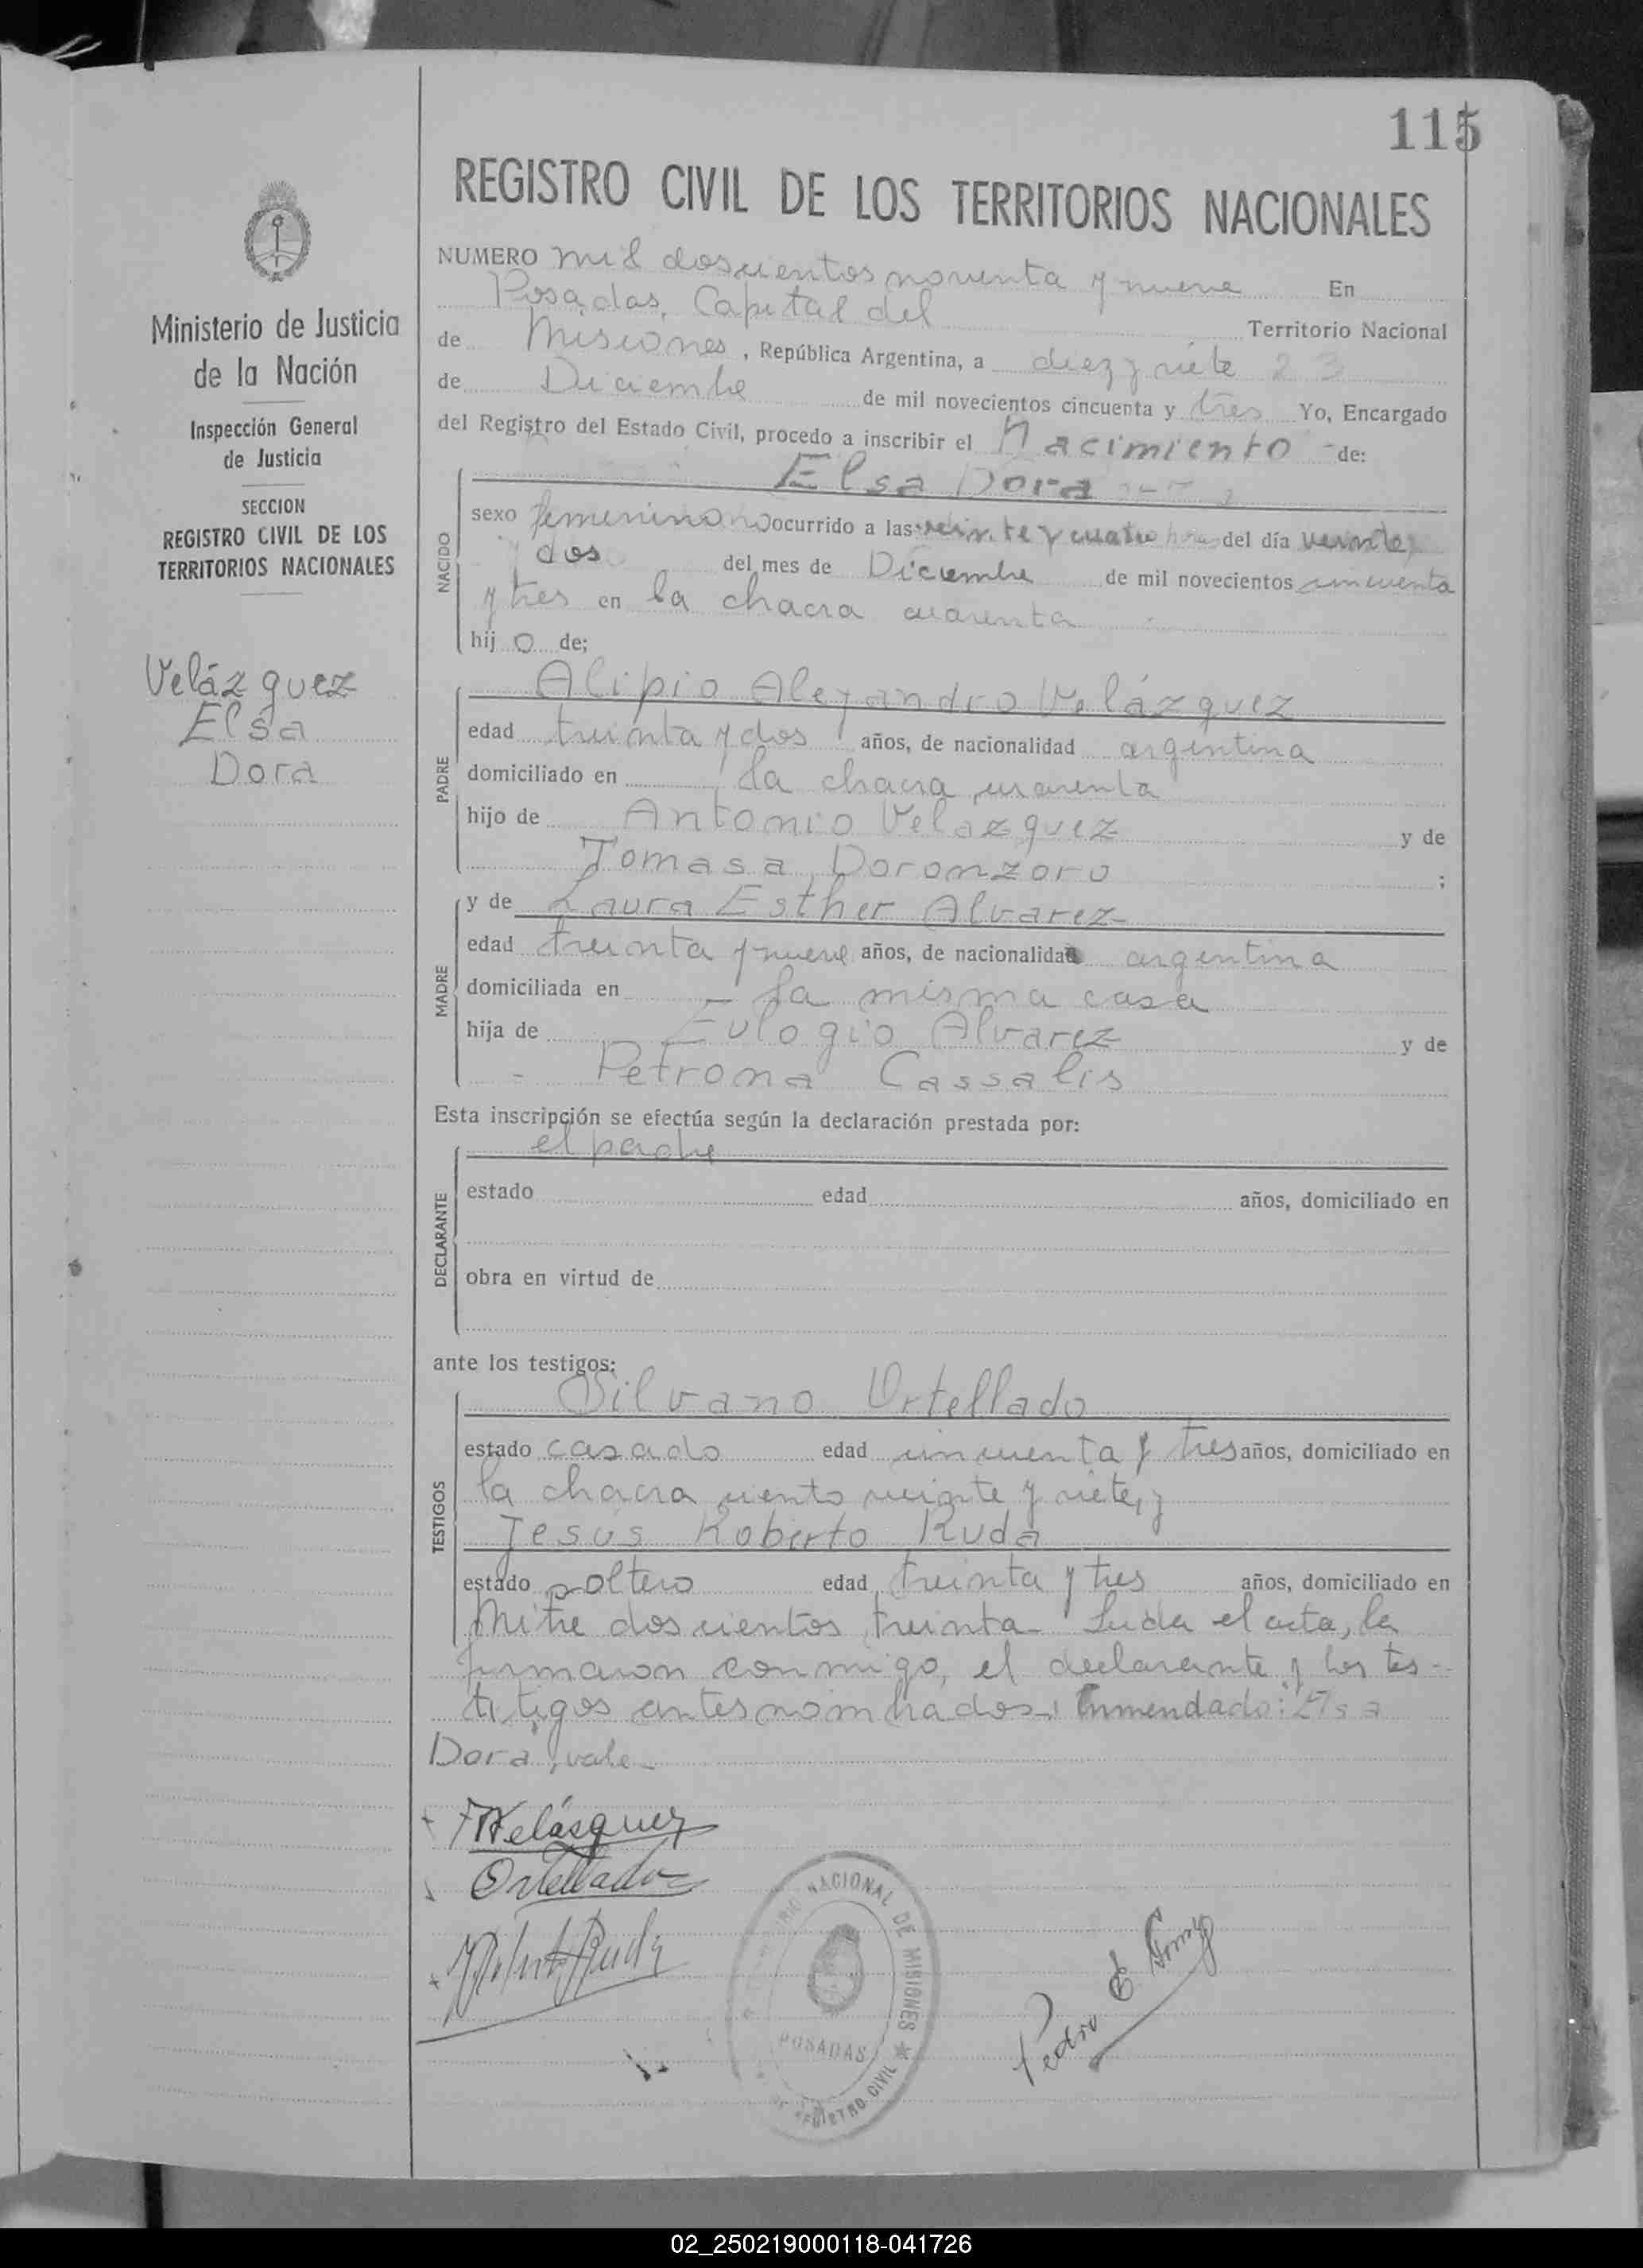 115
REGISTRO CIVIL DE LOS TERRITORIOS NACIONALES
Ministerio de Justicia
de la Nación
Inspección General
de Justicia
SECCION
REGISTRO CIVIL DE LOS
TERRITORIOS NACIONALES
Velázquez
Elsa
Dora
NUMERO mil doscientos noventa y nueve En
Posadas, Capital del Territorio Nacional
de Misiones, República Argentina, a diez y siete 23
de Diciembre de mil novecientos cincuenta y tres Yo, Encargado
del Registro del Estado Civil, procedo a inscribir el Nacimiento de:
Elsa Dora
NACIDO
sexo femenino ocurrido a las veinte y cuatro horas del día veinte y
dos del mes de Diciembre de mil novecientos cincuenta
y tres en la chacra cuarenta
hij o de;
PADRE
Alipio Alejandro Velázquez
edad treinta y dos años, de nacionalidad argentina
domiciliado en la chacra cuarenta
hijo de Antonio Velazquez y de
Tomasa Doronzoro ;
MADRE
y de Laura Esther Alvarez
edad treinta y nueve años, de nacionalidad argentina
domiciliada en la misma casa
hija de Eulogio Alvarez y de
Petrona Cassalis
Esta inscripción se efectúa según la declaración prestada por:
DECLARANTE
el padre
estado edad años, domiciliado en
obra en virtud de
ante los testigos:
TESTIGOS
Silvano Ortellado
estado casado edad cincuenta y tres años, domiciliado en
la chacra ciento veinte y siete, y
Jesús Roberto Ruda
estado soltero edad treinta y tres años, domiciliado en
Mitre doscientos treinta. Leida el acta, la
firmaron conmigo, el declarante y los tes-
titigos antes nombrados. Enmendado: Elsa
Dora, vale.
Velásquez
Ortellado
Ruda
Pedro E.
NACIONAL DE MISIONES
POSADAS
REGISTRO CIVIL
02_250219000118-041726